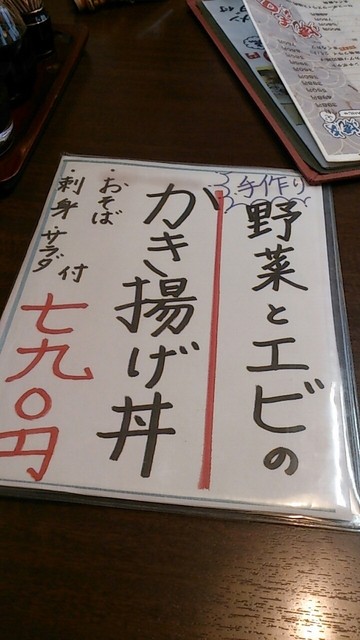 手作り
野菜とエビの
かき揚げ丼
・おそば
・刺身 サラダ 付
七九〇円